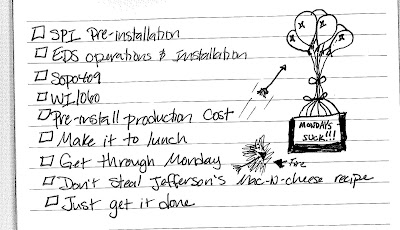 SPL Pre-installation
EDS operations & Installation
Sop0409
WI1060
Pre-install-production Cost
Make it to lunch
Get through Monday
Fire
Don't steal Jefferson's Mac-N-cheese recipe
Just get it done
MONDAYS
SUCK!!!